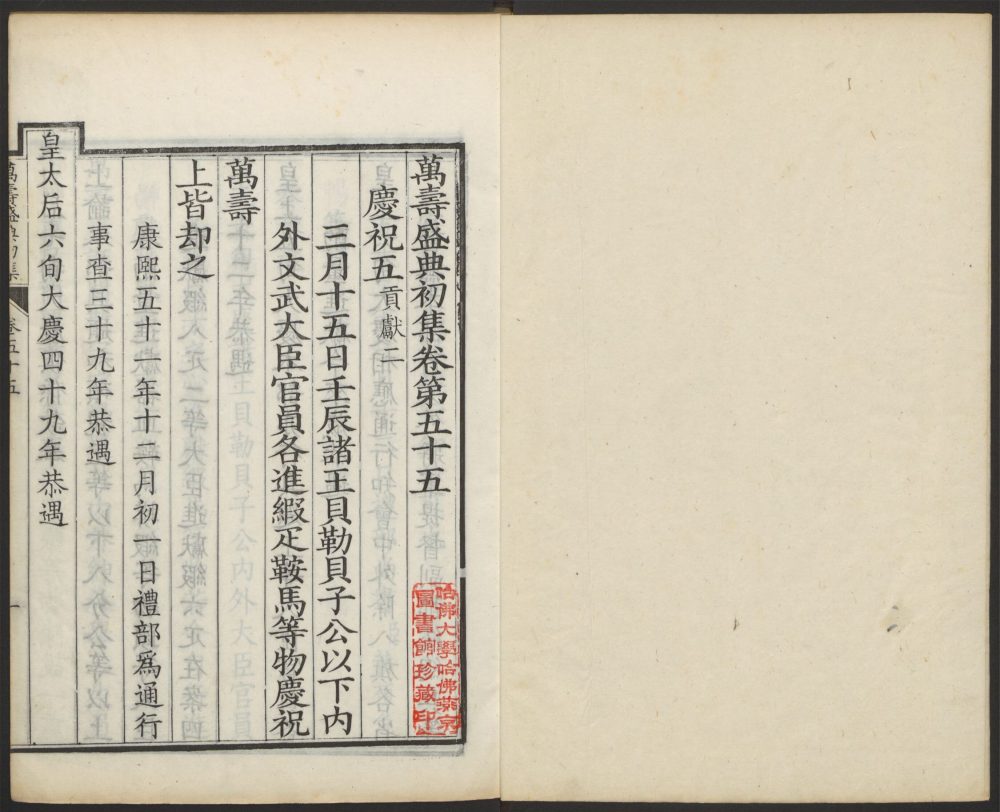 萬壽盛典初集卷第五十五
慶祝五貢獻二
三月十五日壬辰諸王貝勒貝子公以下內
外文武大臣官員各進緞疋鞍馬等物慶祝
萬壽
上皆却之
康熙五十一年十二月初一日禮部爲通行
事查三十九年恭遇
皇太后六旬大慶四十九年恭遇
萬壽盛典初集
卷五十五
一
哈佛大學哈佛燕京
圖書館珍藏印